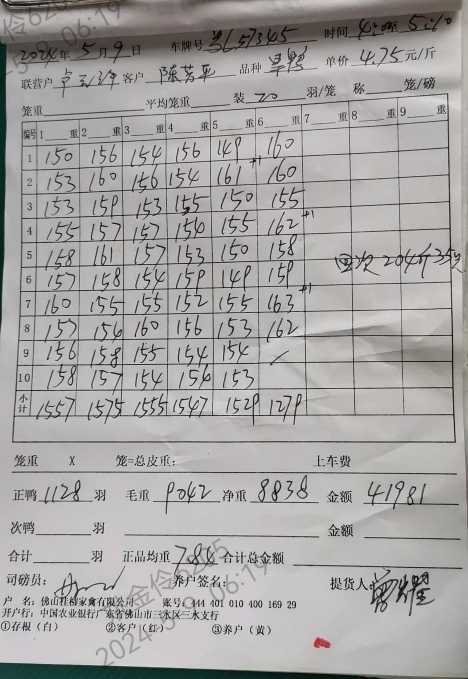 2024年5月9日 车牌号 57345 时间 5:10
联营户 客户 陈芳平 品种 旱鸭 单价 4.75 元/斤
笼重 平均笼重 装 20 羽/笼 称 笼/磅
编号 1 重 2 重 3 重 4 重 5 重 6 重 7 重 8 重 9 重
1 150 156 154 156 149 160
2 153 160 156 154 161 +1 160
3 153 159 153 155 150 155
4 155 157 157 154 155 162 +1
5 158 161 157 153 150 158
6 157 158 154 159 149 159 回次 204斤35只
7 160 155 155 152 155 163 +1
8 157 154 160 156 153 162
9 156 158 155 154 154
10 158 157 154 154 153
小计 1557 1575 1555 1547 1529 1279
笼重 X 笼=总皮重: 上车费
正鸭 1128 羽 毛重 9042 净重 8838 金额 41981
次鸭 羽 金额
合计 羽 正品均重 7.84 合计总金额
司磅员: 养户签名: 提货人
户 名: 佛山桂柳家禽有限公司 账号: 444 401 010 400 169 29
开户行: 中国农业银行广东省佛山市三水区三水支行
①存根(白) ②客户(红) ③养户(黄)
2024-5-9 06:19